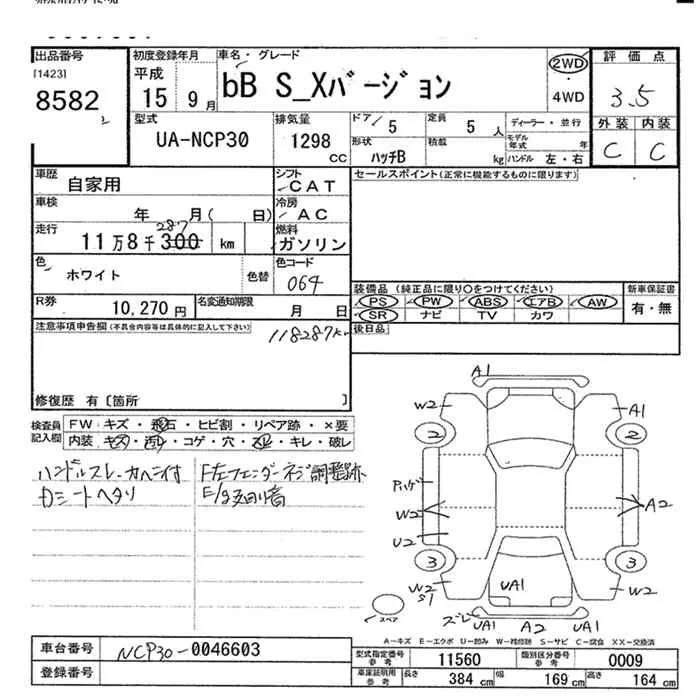 出品番号
[1423]
8582
初度登録年月
平成
15 9 月
車名・グレード
bB S_Xバージョン
2WD
・
4WD
評価点
3.5
外装 内装
C C
型式
UA-NCP30
排気量
1298
CC
ドア 5
定員 5 人
形状 ハッチB
積載 kg
ディーラー・並行
モデル年式 年
ハンドル 左・右
車歴
自家用
シフト
CAT
車検
年 月( 日)
冷房
AC
走行
11万8千300 km
287
燃料
ガソリン
色
ホワイト
色替
色コード
064
R券
10,270円
名変通知期限
月 日
セールスポイント(正常に機能するものに限ります)
装備品(純正品に限り○をつけてください)
PS PW ABS エアB AW
SR ナビ TV カワ
新車保証書
有・無
後日品
注意事項申告欄(不具合内容等は具体的に記入して下さい)
118287km
修復歴 有[箇所 ]
検査員記入欄
FW キズ・飛石・ヒビ割・リペア跡・×要
内装 キズ・汚れ・コゲ・穴・スレ・キレ・破レ
ハンドルスレ
Dシートヘタリ
F左フェンダーネジ調整跡
A1
W2 A1
2 2
W2 A2
U2
3 3
W2 UA1 W2
S1
スペア
ズレ UA1 A2 UA1
A-キズ E-エクボ U-凹み W-補修跡 S-サビ C-腐食 XX-交換済
車台番号
NCP30-0046603
登録番号
型式指定番号
参考
11560
類別区分番号
参考
0009
車庫証明用
参考
長さ 384 cm 幅 169 cm 高さ 164 cm